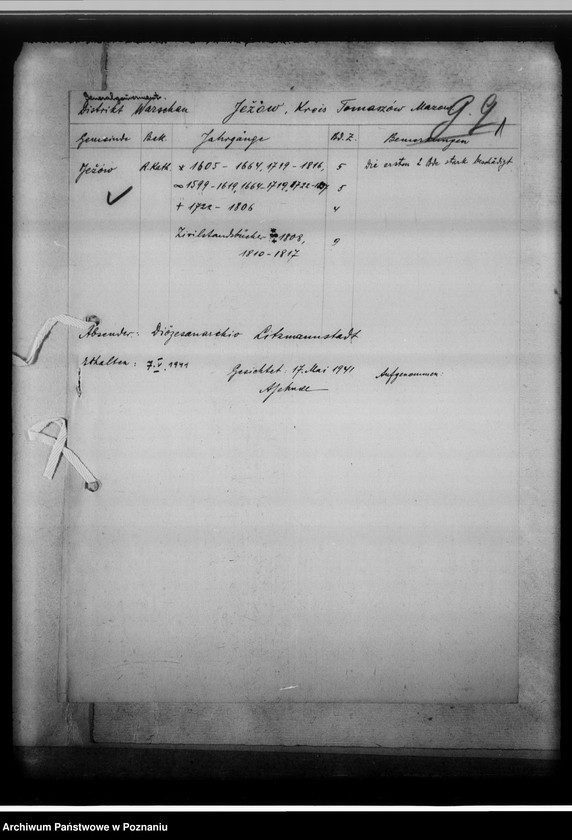 Generalgouvernement.
Distrikt Warschau Jeżów, Kreis Tomaszów Mazow. G. G.
Gemeinde Bek. Jahrgänge Bd. Z. Bemerkungen
Jeżów R. Kath. * 1605 - 1664, 1719 - 1816, 5 Die ersten 2 Bde stark beschädigt
∞ 1599 - 1619, 1664 - 1719, 1722 - 5
+ 1722 - 1806 4
Zivilstandsbücher 1808, 9
1810 - 1817
Absender: Diözesanarchiv Litzmannstadt
Erhalten: 7. V. 1941 Gesichtet: 17. Mai 1941 Aufgenommen:
Archiwum Państwowe w Poznaniu